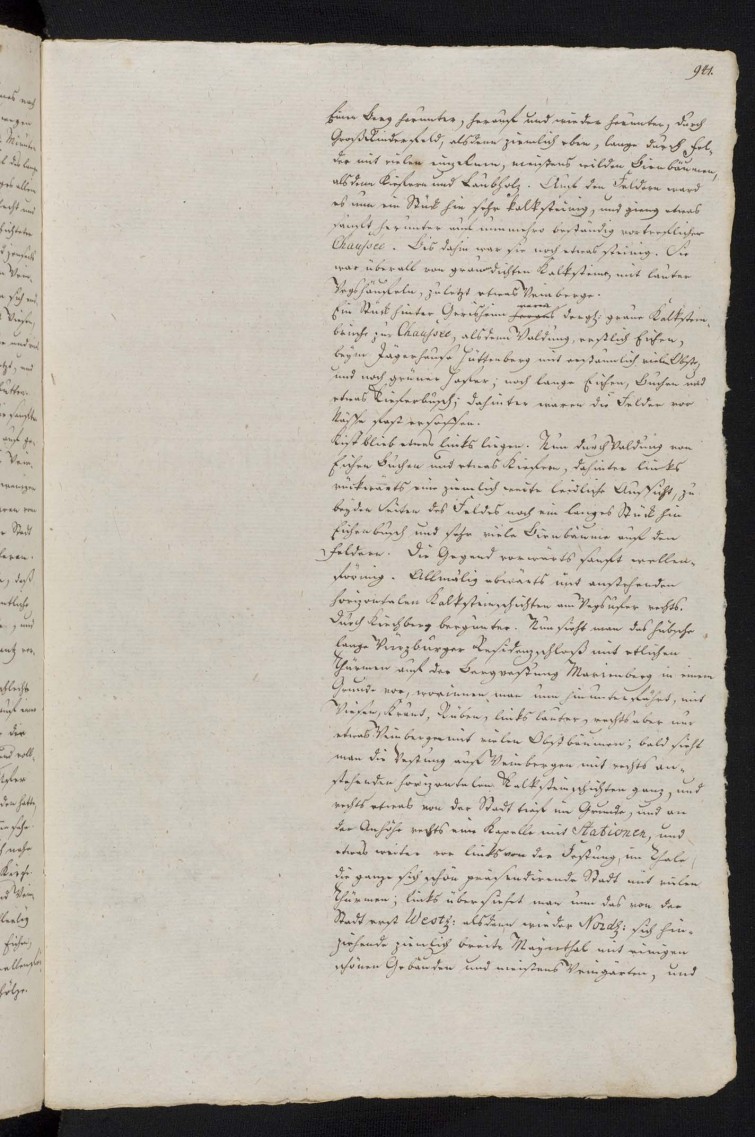 941.
einen Berg herunter, herauf und wieder herunter, durch
Groß Rinderfeld, alsdenn ziemlich eben, lange durch Fel-
der mit vielen einzelnen, meistens wilden Birnbäumen,
alsdenn Kiefern und Laubholz. Auf den Feldern ward
es nun ein Stück hin sehr kalksteinig, und gieng etwas
sanft herunter auf nunmehro beständig vortreflicher
Chaussee. Bis dahin war sie noch etwas steinig. Sie
war überall von grau dichten Kalkstein, mit lauter
zuletzt etwas Weinberge.
Ein Stück hinter Gerichsheim waren dergl: graue Kalkstein-
brüche zur Chaussee, alsdenn Waldung, erstlich Eichen,
beym Jägerhause Hüttenberg mit erstaunlich viele Obst,
und noch grüner Hafer; noch lange Eichen, Buchen und
etwas Kieferbusch; dahinter waren die Felder vor
Nässe fast ersoffen.
Kist blieb etwas links liegen. Nun durch Waldung von
Eichen Buchen und etwas Kiefern, dahinter links
rückwärts eine ziemlich weite leidliche Aussicht, zu
beyden Seiten des Feldes noch ein langes Stück hin
Eichenbusch und sehr viele Birnbäume auf den
Feldern. Die Gegend vorwärts sanft wellen-
förmig. Allmälig abwärts mit anstehenden
horizontalen Kalksteinschichten am Wegsufer rechts.
Durch Kirchberg bergunter. Nun sieht man das hübsche
lange Würzburger Residenzschloß mit etlichen
Thürmen auf der Bergvestung Marienberg in einem
Grunde vor, worinnen man nun hinunter fährt, mit
Wiesen, Kraut, Rüben, links lauter, rechts aber nur
etwas Weinbergen mit vielen Obstbäumen; bald sieht
man die Vestung auf Weinbergen mit rechts an-
stehenden horizontalen Kalksteinschichten ganz, und
rechts etwas von der Stadt tief im Grunde, und an
der Anhöhe rechts eine Kapelle mit Stationen, und
etwas weiter vor links von der Festung, im Thale
die ganze sich schön präsendirende Stadt mit vielen
Thürmen; links übersiehet man nun das von der
Stadt erst Westl: alsdenn wieder Nordl: sich hin-
ziehende ziemlich breite Maynthal mit einigen
schönen Gebäuden und meistens Weingärten, und